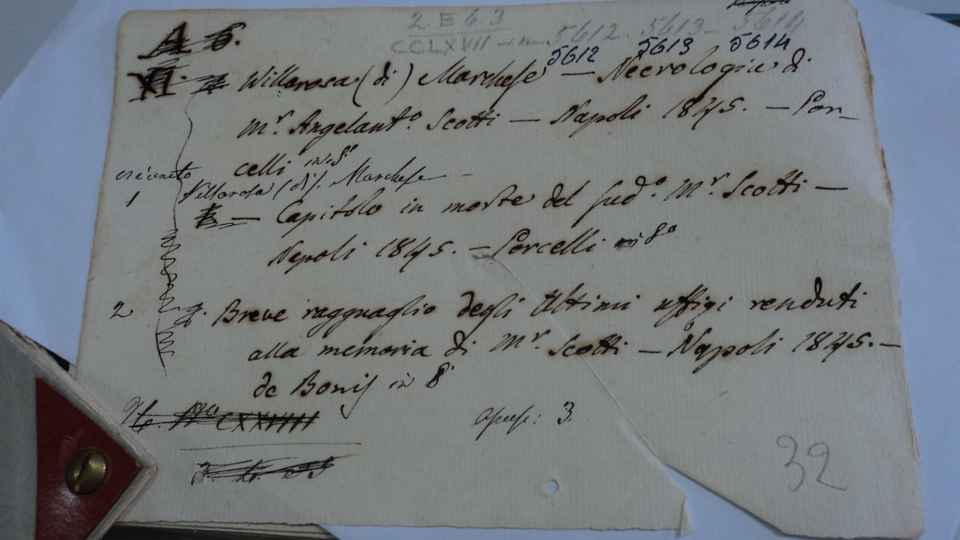 2 E 6 3
CCLXVII 5612. 5613 - 5614
A 6.
5612 5613 5614
XI. Villarosa (di) Marchese — Necrologia di
M.r Angelant.o Scotti — Napoli 1845. — Por_
celli in 8.o
1 Villarosa (di). Marchese —
— Capitolo in morte del sud.o M.r Scotti —
Napoli 1845. — Porcelli in 8.o
2 Breve ragguaglio degli Ultimi uffizi renduti
alla memoria di M.r Scotti — Napoli 1845. —
de Bonis in 8.o
CXXVIIII
opusc: 3.
32